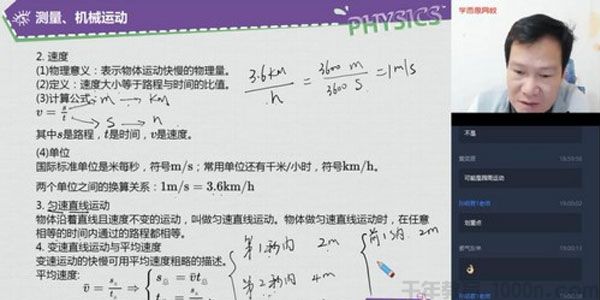 测量、机械运动
PHYSICS
学而思网校
2. 速度
(1)物理意义：表示物体运动快慢的物理量。
(2)定义：速度大小等于路程与时间的比值。
(3)计算公式：
m → km
v = s/t
s → h
3.6km/h = 3600 m/3600 s = 1m/s
其中s是路程，t是时间，v是速度。
(4)单位
国际标准单位是米每秒，符号m/s；常用单位还有千米/小时，符号km/h。
两个单位之间的换算关系：1m/s = 3.6km/h
3. 匀速直线运动
物体沿着直线且速度不变的运动，叫做匀速直线运动。物体做匀速直线运动时，在任意
相等的时间内通过的路程都相等。
4. 变速直线运动与平均速度
变速运动的快慢可用平均速度粗略的描述。
平均速度：
第1秒内 2m
第2秒内 4m
前1s内 2m
不是
18:59:56
可能是周周运动
19:00:02
划重点
19:00:11